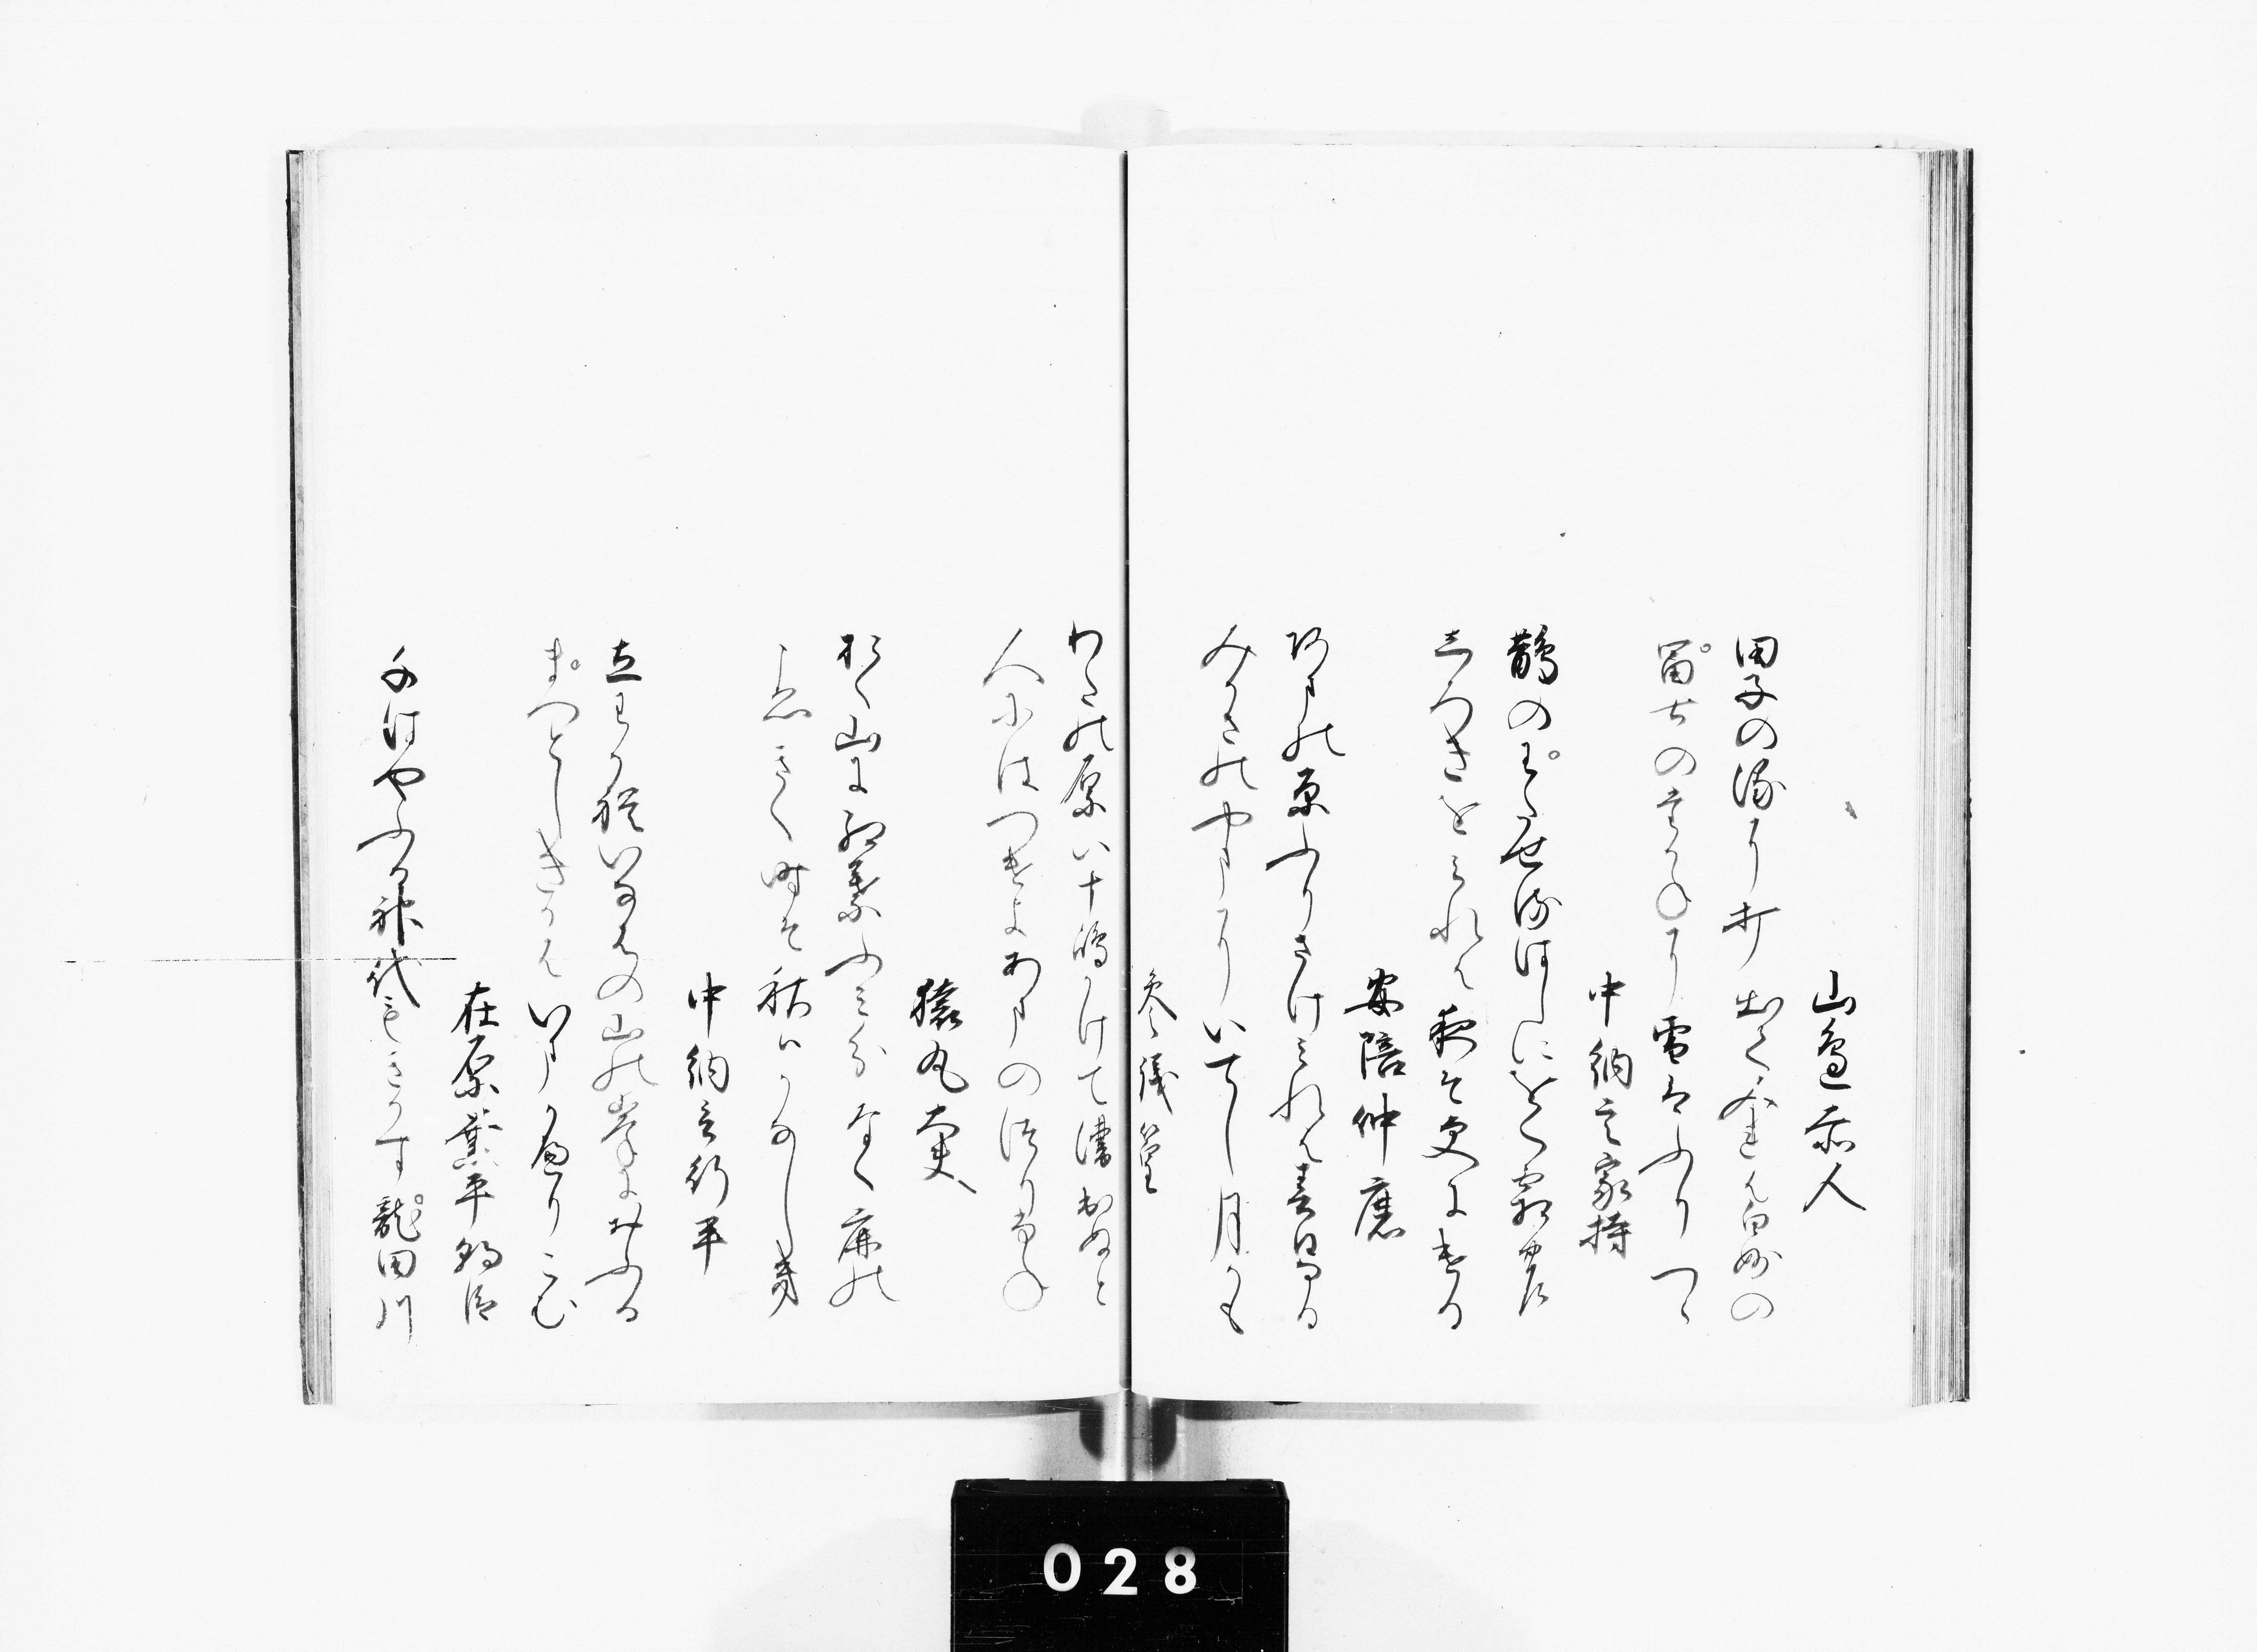 山邊赤人
田子の浦に打出てみれは白妙の
冨士のたかねに雪はふりつゝ
中納言家持
鵲のわたせる橋にをく霜の
しろきをみれは夜そ更にける
安陪仲麿
あまの原ふりさけみれは春日なる
みかさのやまにいてし月かも
参議篁
わたの原八十嶋かけて漕出ぬと
人にはつけよあまの釣ふね
猿丸大夫
おく山に紅葉ふみ分なく鹿の
こゑきく時そ秋はかなしき
中納言行平
立わかれいなはの山の峯におふる
まつとしきかはいまかへりこむ
在原業平朝臣
千はやふる神代もきかす龍田川
028